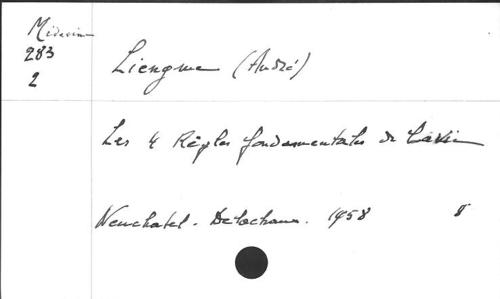 Médecine
283
2
Liengme (André)
Les 4 Règles fondamentales de
Neuchatel. Delachaux. 1958 8